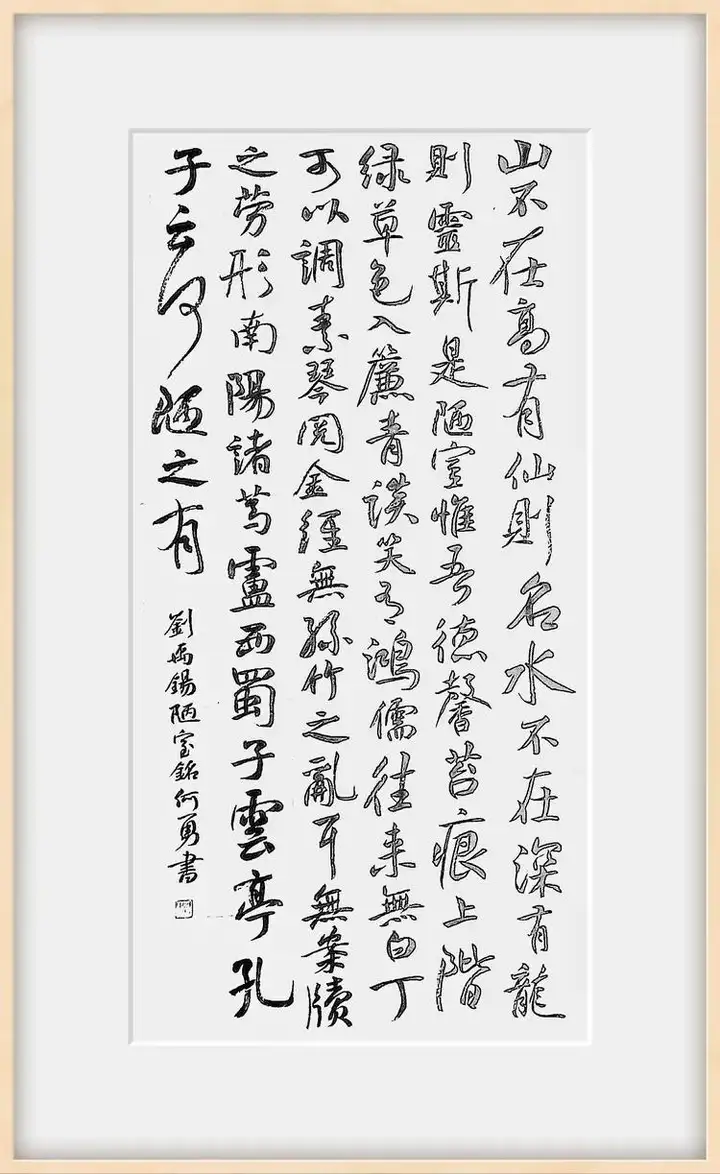 山不在高有仙則名水不在深有龍
則靈斯是陋室惟吾德馨苔痕上階
绿草色入簾青談笑有鴻儒往来無白丁
可以調素琴閱金經無絲竹之亂耳無案牘
之劳形南陽諸葛廬西蜀子雲亭孔
子云何陋之有
劉禹錫陋室銘何勇書